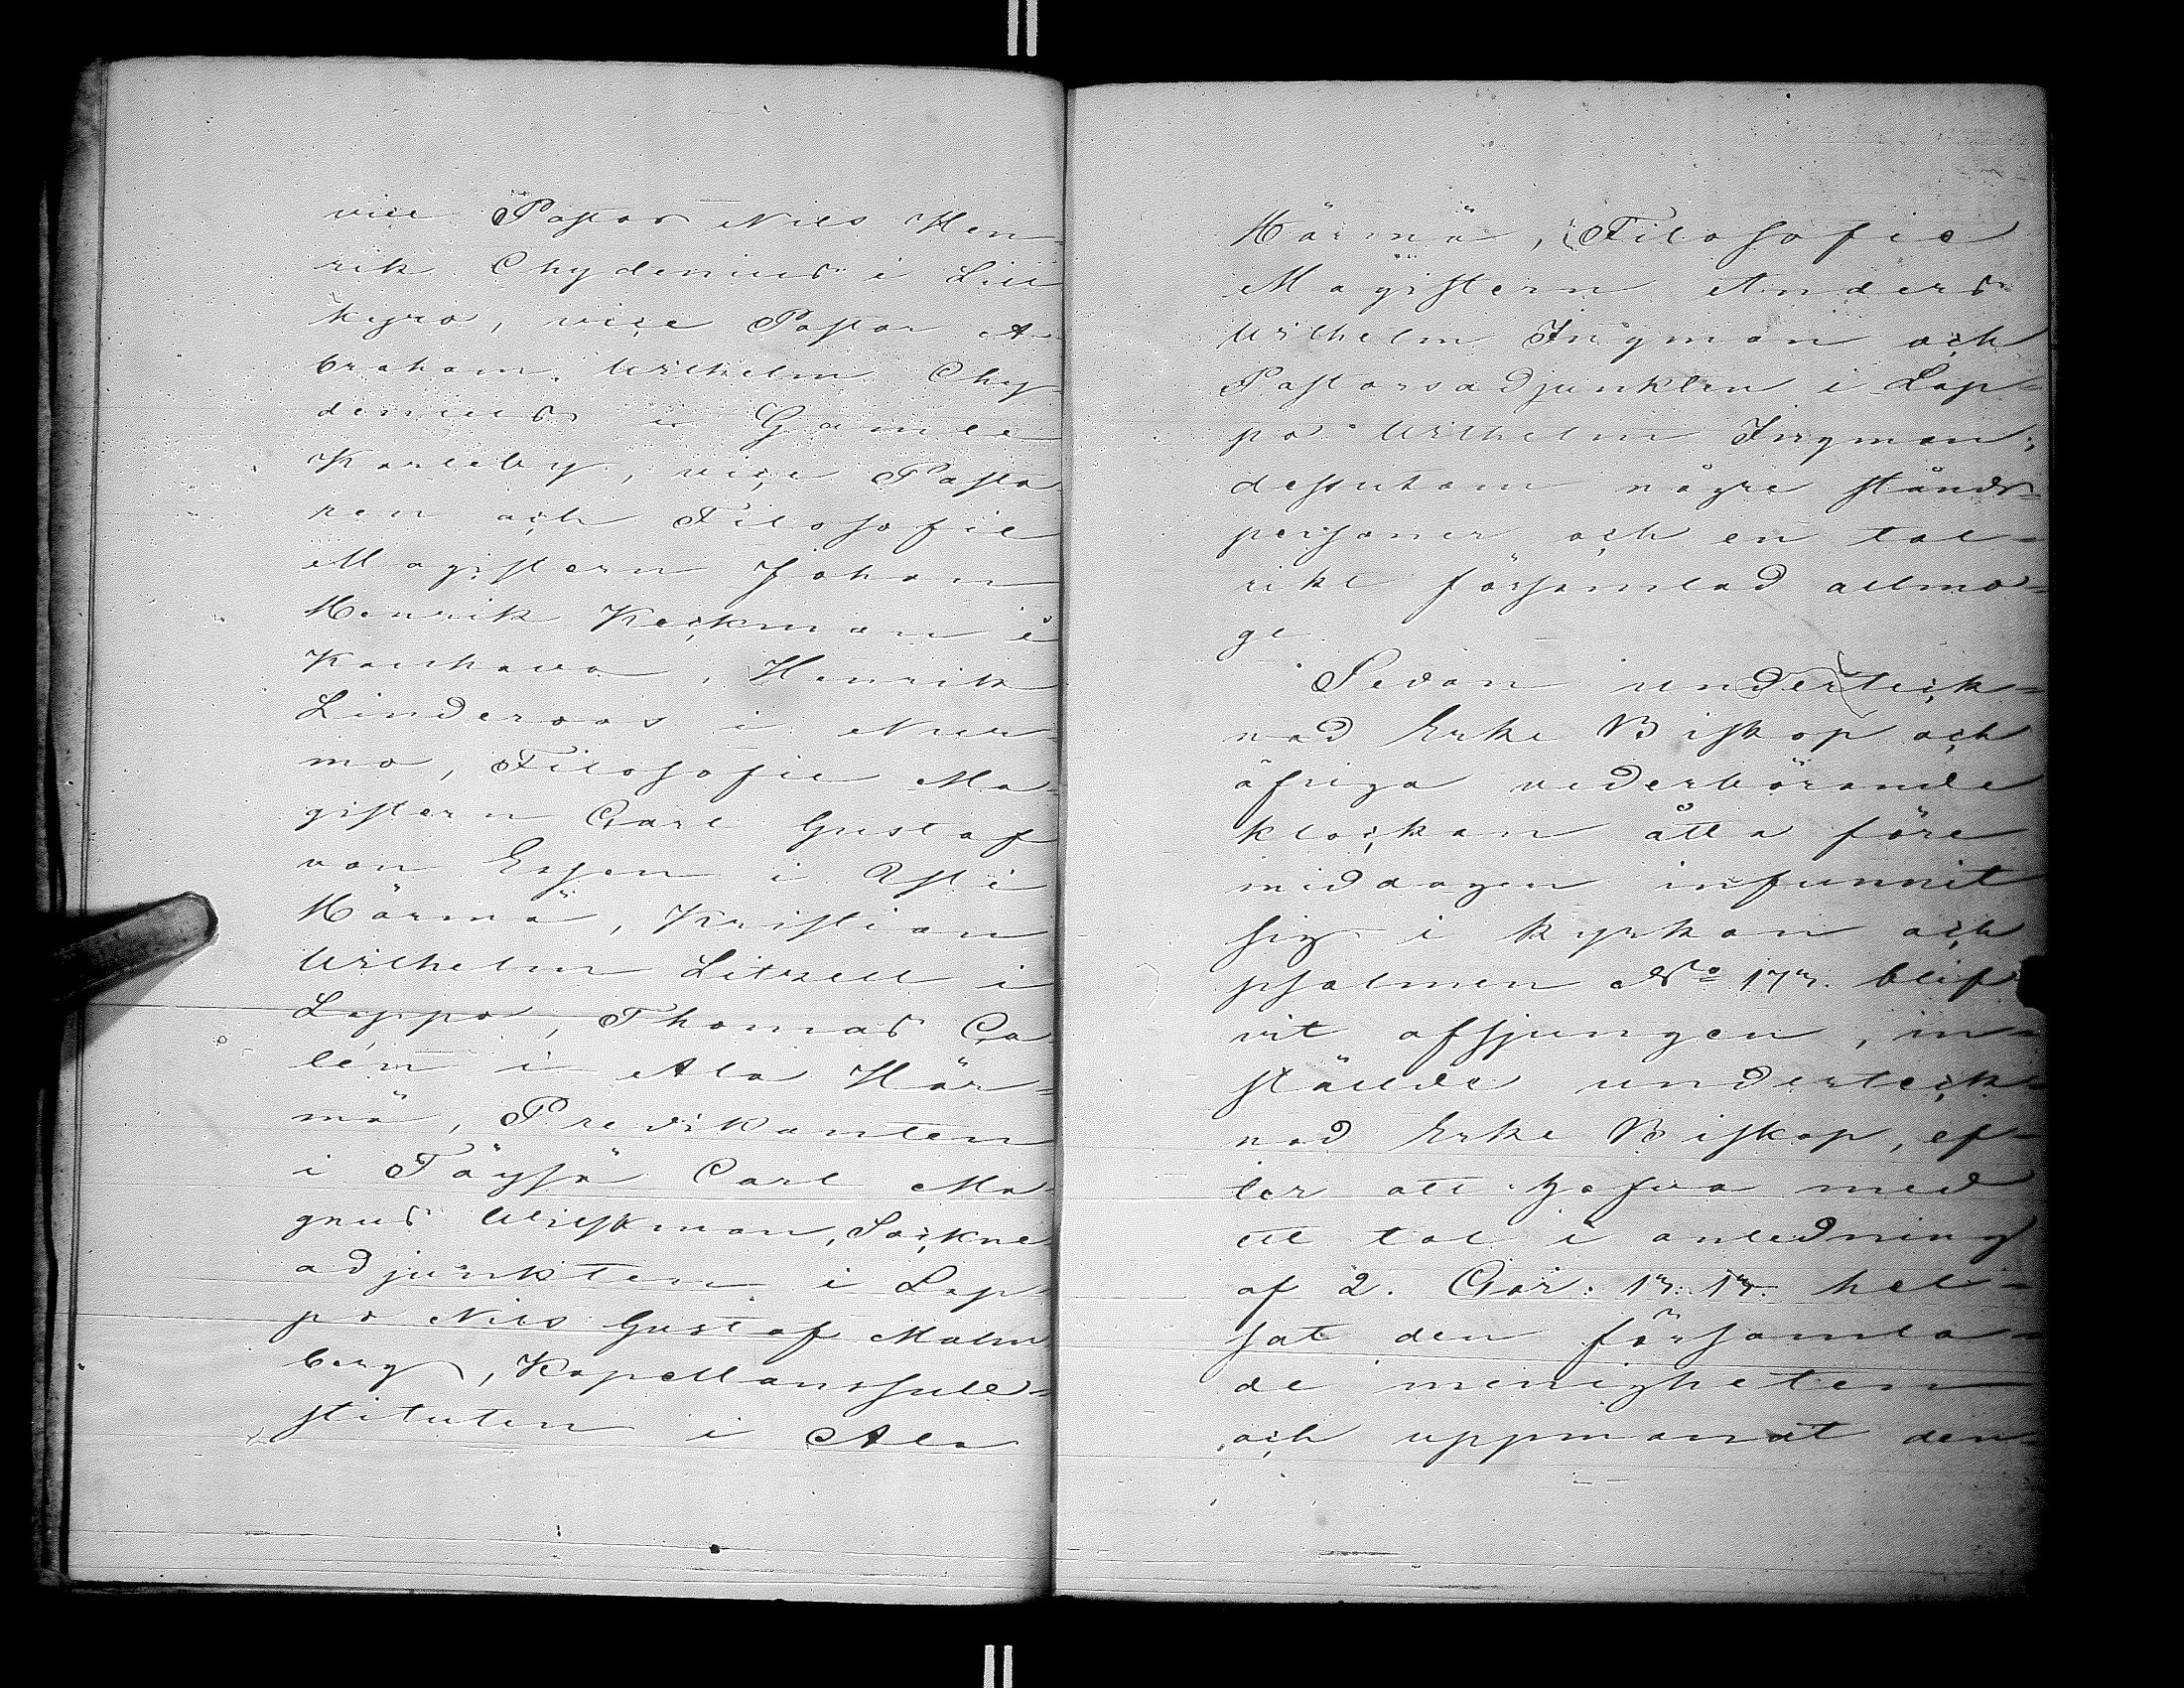 vice Pastor Nils Hen-
rik Chydenius i Lill
kyro, vice Pastor A-
braham Wilhelm Chy-
denius i Gamle
Karleby, vice Pasto-
ren och Filosofie
Magistern Johan
Henrik Keckman i
Kauhava, Henrik
Linderoos i Nur-
mo, Filosofie Ma-
gistern Carl Gustaf
von Essen i Yli
Härmä, Kristian
Wilhelm Litzell i
Lappo, Thomas Ca-
lém i Ala Här-
mä, Predikanten
i Töysä Carl Ma-
gnus Weiskman, Sockne
adjunkten i Lap-
po Nils Gustaf Malm
berg, Kapellanssub-
stituten i Ala
Härmä, Filosofie
Magistern Anders
Wilhelm Ingman och
Pastorsadjunkten i Lap-
po Wilhelm Ingman;
dessutom några stånds-
personer och en tal-
rikt församlad allmo-
ge.
Sedan underteck-
nad Erke Biskop och
öfriga vederbörande
klockan åtta före
middagen infunnit
sig i kyrkan och
psalmen No 173. blif
vit afsjungen, in-
ställde underteck-
nad Erke Biskop, ef-
ter att hafva med
ett tal i anledning
af 2. Cor. 13. 13. hel-
sat den församla-
de menigheten
och uppmanat den